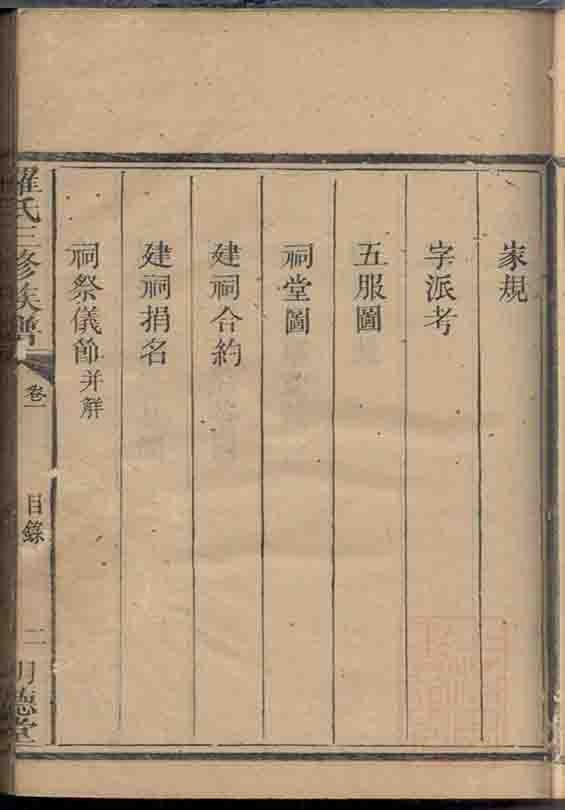 家規
字派考
五服圖
祠堂圖
建祠合約
建祠捐名
祠祭儀節并觧
羅氏三修族譜
卷一
目錄
二
明德堂